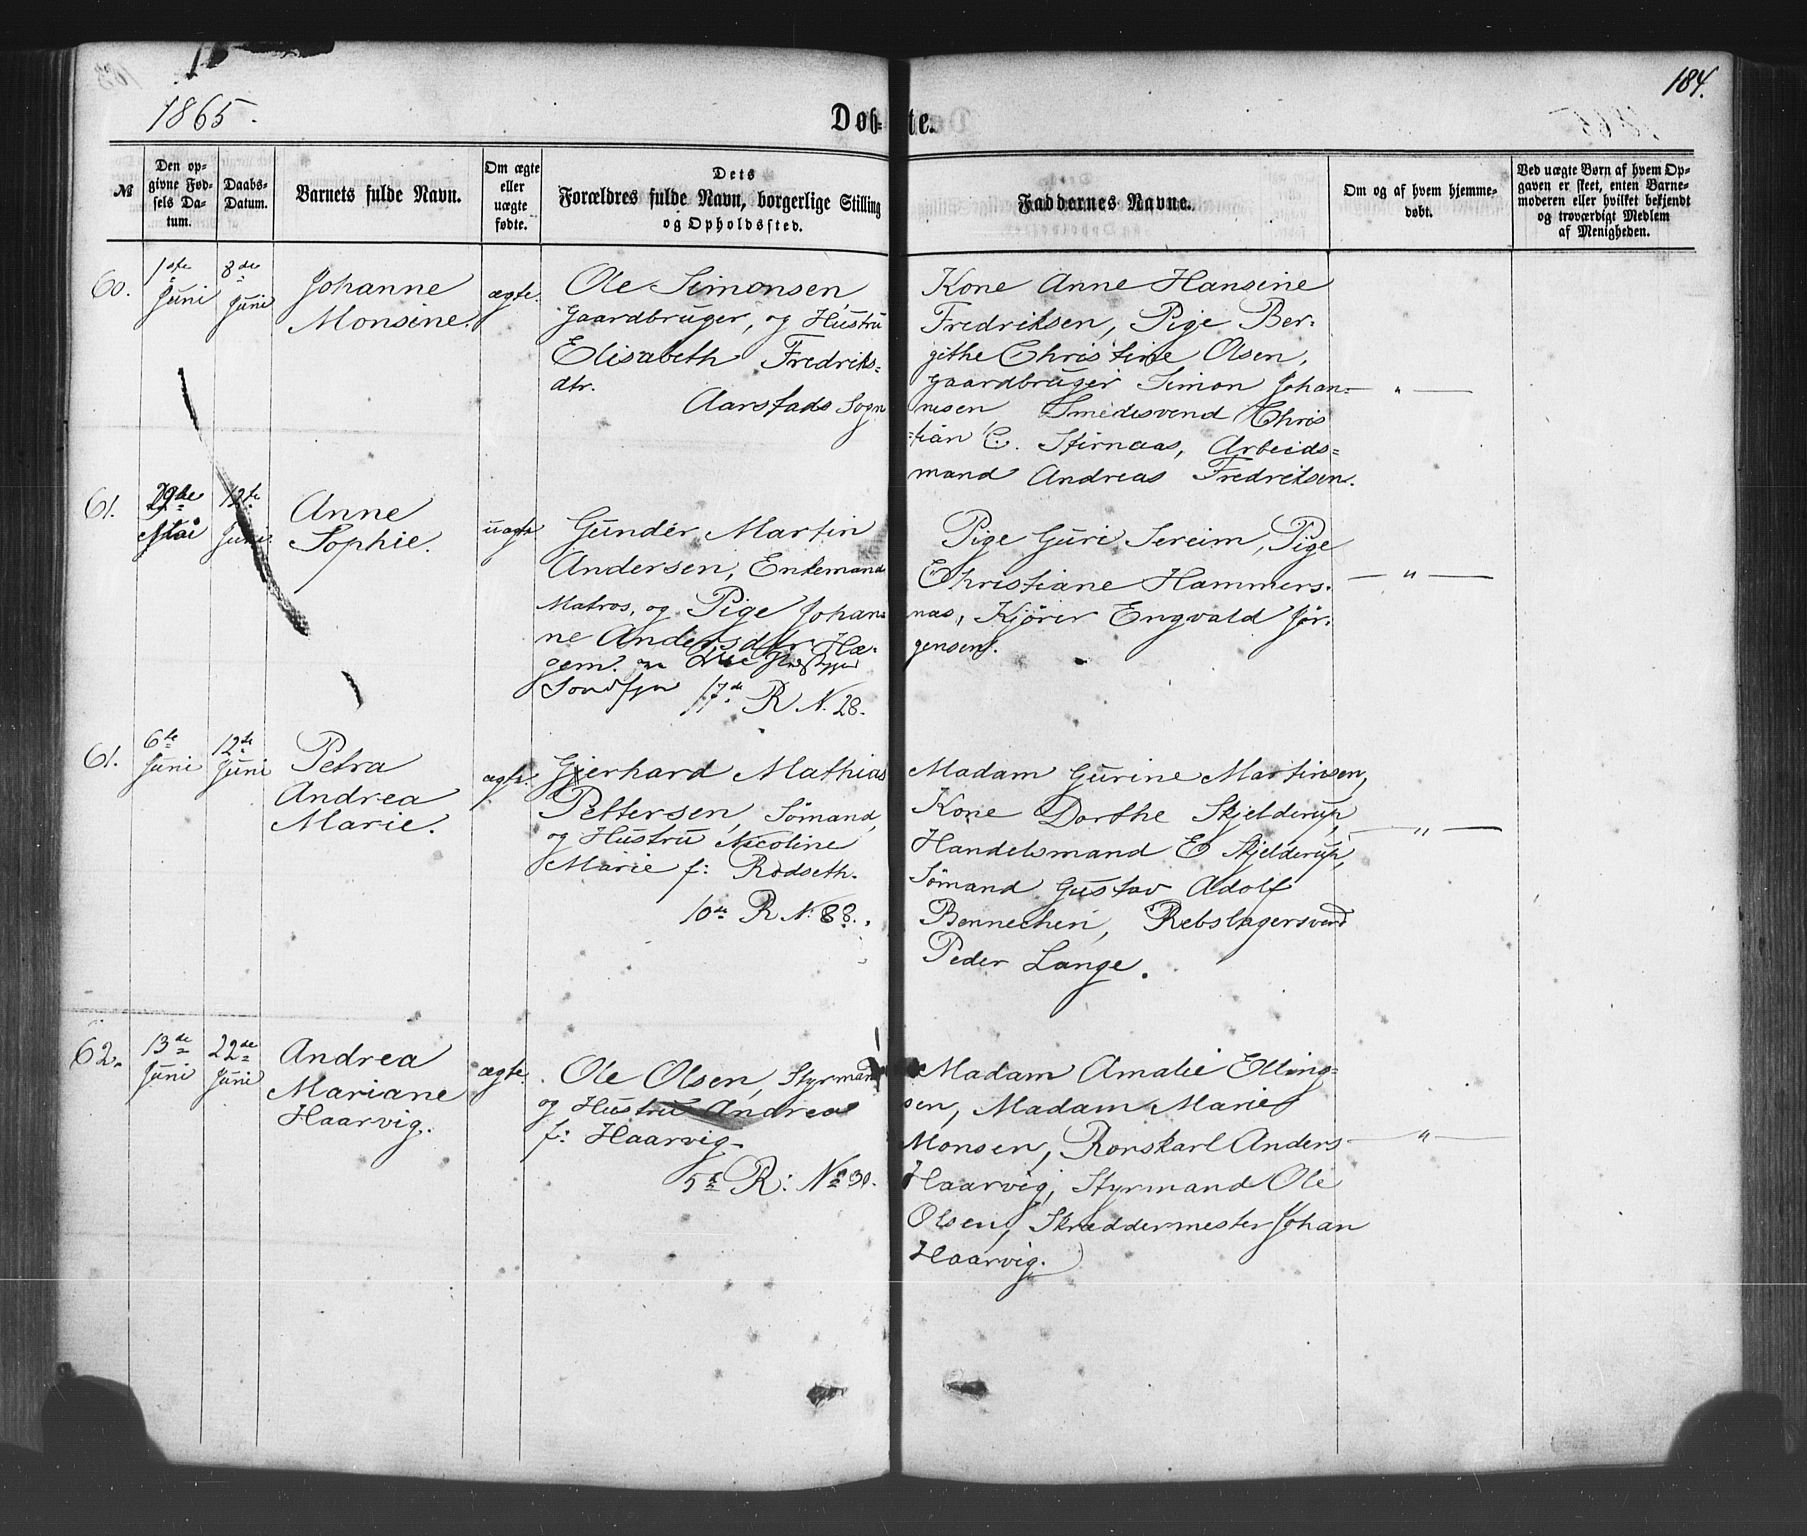 184.
1865.
Døbte.
№
Den opgivne Fødsels Datum.
Daabs-Datum.
Barnets fulde Navn.
Om ægte eller uægte fødte.
Dets Forældres fulde Navn, borgerlige Stilling og Opholdssted.
Faddernes Navne.
Om og af hvem hjemmedøbt.
Ved uægte Børn af hvem Opgaven er skeet, enten Barnemoderen eller hvilket bekjendt og troværdigt Medlem af Menigheden.
60.
1ste Juni
8de Juni
Johanne
Monsine.
ægte.
Ole Simonsen,
Gaardbruger, og Hustru
Elisabeth Fredriks-
dtr.
Aarstads Sogn
Kone Anne Hansine
Fredriksen, Pige Ber-
githe Christine Olsen,
Gaardbruger Simon Johan-
nesen Smedesvend Chris
-tian C. Stirnaas, Arbeids-
mand Andreas Fredriksen.
— " —
61.
29de Mai
12te Juni
Anne
Sophie.
uægte
Gunder Martin
Andersen, Enkemand
Matros, og Pige Johan-
ne Andersdtr
Søndfjor
17de R N. 28.
Pige Guri Sereim, Pige
Christiane Hammers-
nas, Kjører Engvald Jør-
gensen.
— " —
61.
6te Juni
12te Juni
Petra
Andrea
Marie.
ægte.
Gjerhard Mathias
Pettersen, Sømand,
og Hustru Nicoline
Marie f: Rødseth.
10de R N: 88.
Madam Gurine Martinsen,
Kone Dorthe Skjelderup,
Handelsmand E Skjelderup,
Sømand Gustav Adolf
Bennechen, Rebslagersvend
Peder Lange.
— " —
62.
13de Juni
22de Juni
Andrea
Mariane
Haarvig.
ægte.
Ole Olsen, Styrmand
og Hustru Andrea
f: Haarvig
5te R: No 30.
Madam Amalie Elling-
sen, Madam Marie
Monsen, Rorskarl Anders
Haarvig, Styrmand Ole
Olsen, Skræddermester Johan
Haarvig.
— " —